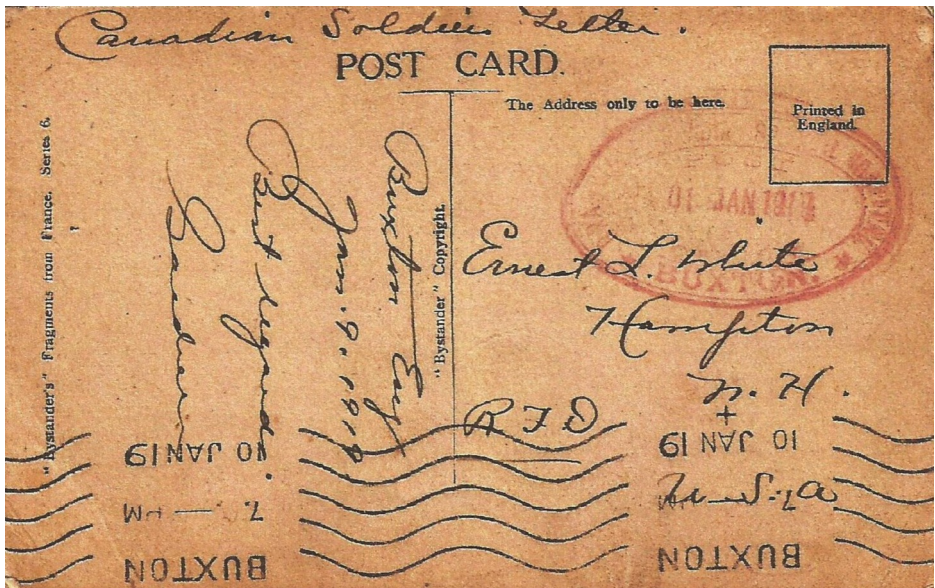 Canadian Soldiers Letter.
POST CARD.
The Address only to be here.
Printed in
England.
"Bystander's" Fragments from France. Series 6.
"Bystander" Copyright.
Buxton Eng
Jan. 9. 1919
Best regards.
Ernest L. White
Hampton
N. H.
R F D
U. S. A
10 JAN 1919
BUXTON.
BUXTON
7 — PM
10 JAN 19
BUXTON
10 JAN 19
+